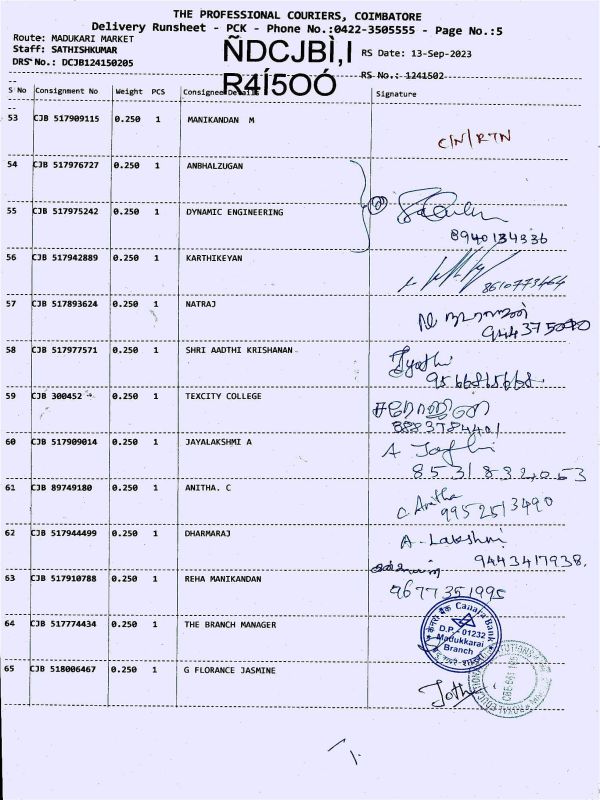 THE PROFESSIONAL COURIERS, COIMBATORE
Delivery Runsheet - PCK - Phone No.:0422-3505555 - Page No.:5
Route: MADUKARI MARKET
Staff: SATHISHKUMAR
ÑDCJBÌ,I
RS Date: 13-Sep-2023
DRS No.: DCJB124150205
R4Í5OÓ
RS No.: 1241502
S No Consignment No Weight PCS Consignee Details Signature
53 CJB 517909115 0.250 1 MANIKANDAN M
C/N/RTN
54 CJB 517976727 0.250 1 ANBHALZUGAN
55 CJB 517975242 0.250 1 DYNAMIC ENGINEERING
8940134336
56 CJB 517942889 0.250 1 KARTHIKEYAN
8610773464
57 CJB 517893624 0.250 1 NATRAJ
58 CJB 517977571 0.250 1 SHRI AADTHI KRISHANAN
Jyothi
9566815668
59 CJB 300452 0.250 1 TEXCITY COLLEGE
8883784401
60 CJB 517909014 0.250 1 JAYALAKSHMI A
8531832053
61 CJB 89749180 0.250 1 ANITHA. C
C Anitha
9952513490
62 CJB 517944499 0.250 1 DHARMARAJ
A. Lakshmi
9443417938.
63 CJB 517910788 0.250 1 REHA MANIKANDAN
9677351995
64 CJB 517774434 0.250 1 THE BRANCH MANAGER
Canara Bank
D.P - 01232
Madukkarai
Branch
65 CJB 518006467 0.250 1 G FLORANCE JASMINE
Jothi